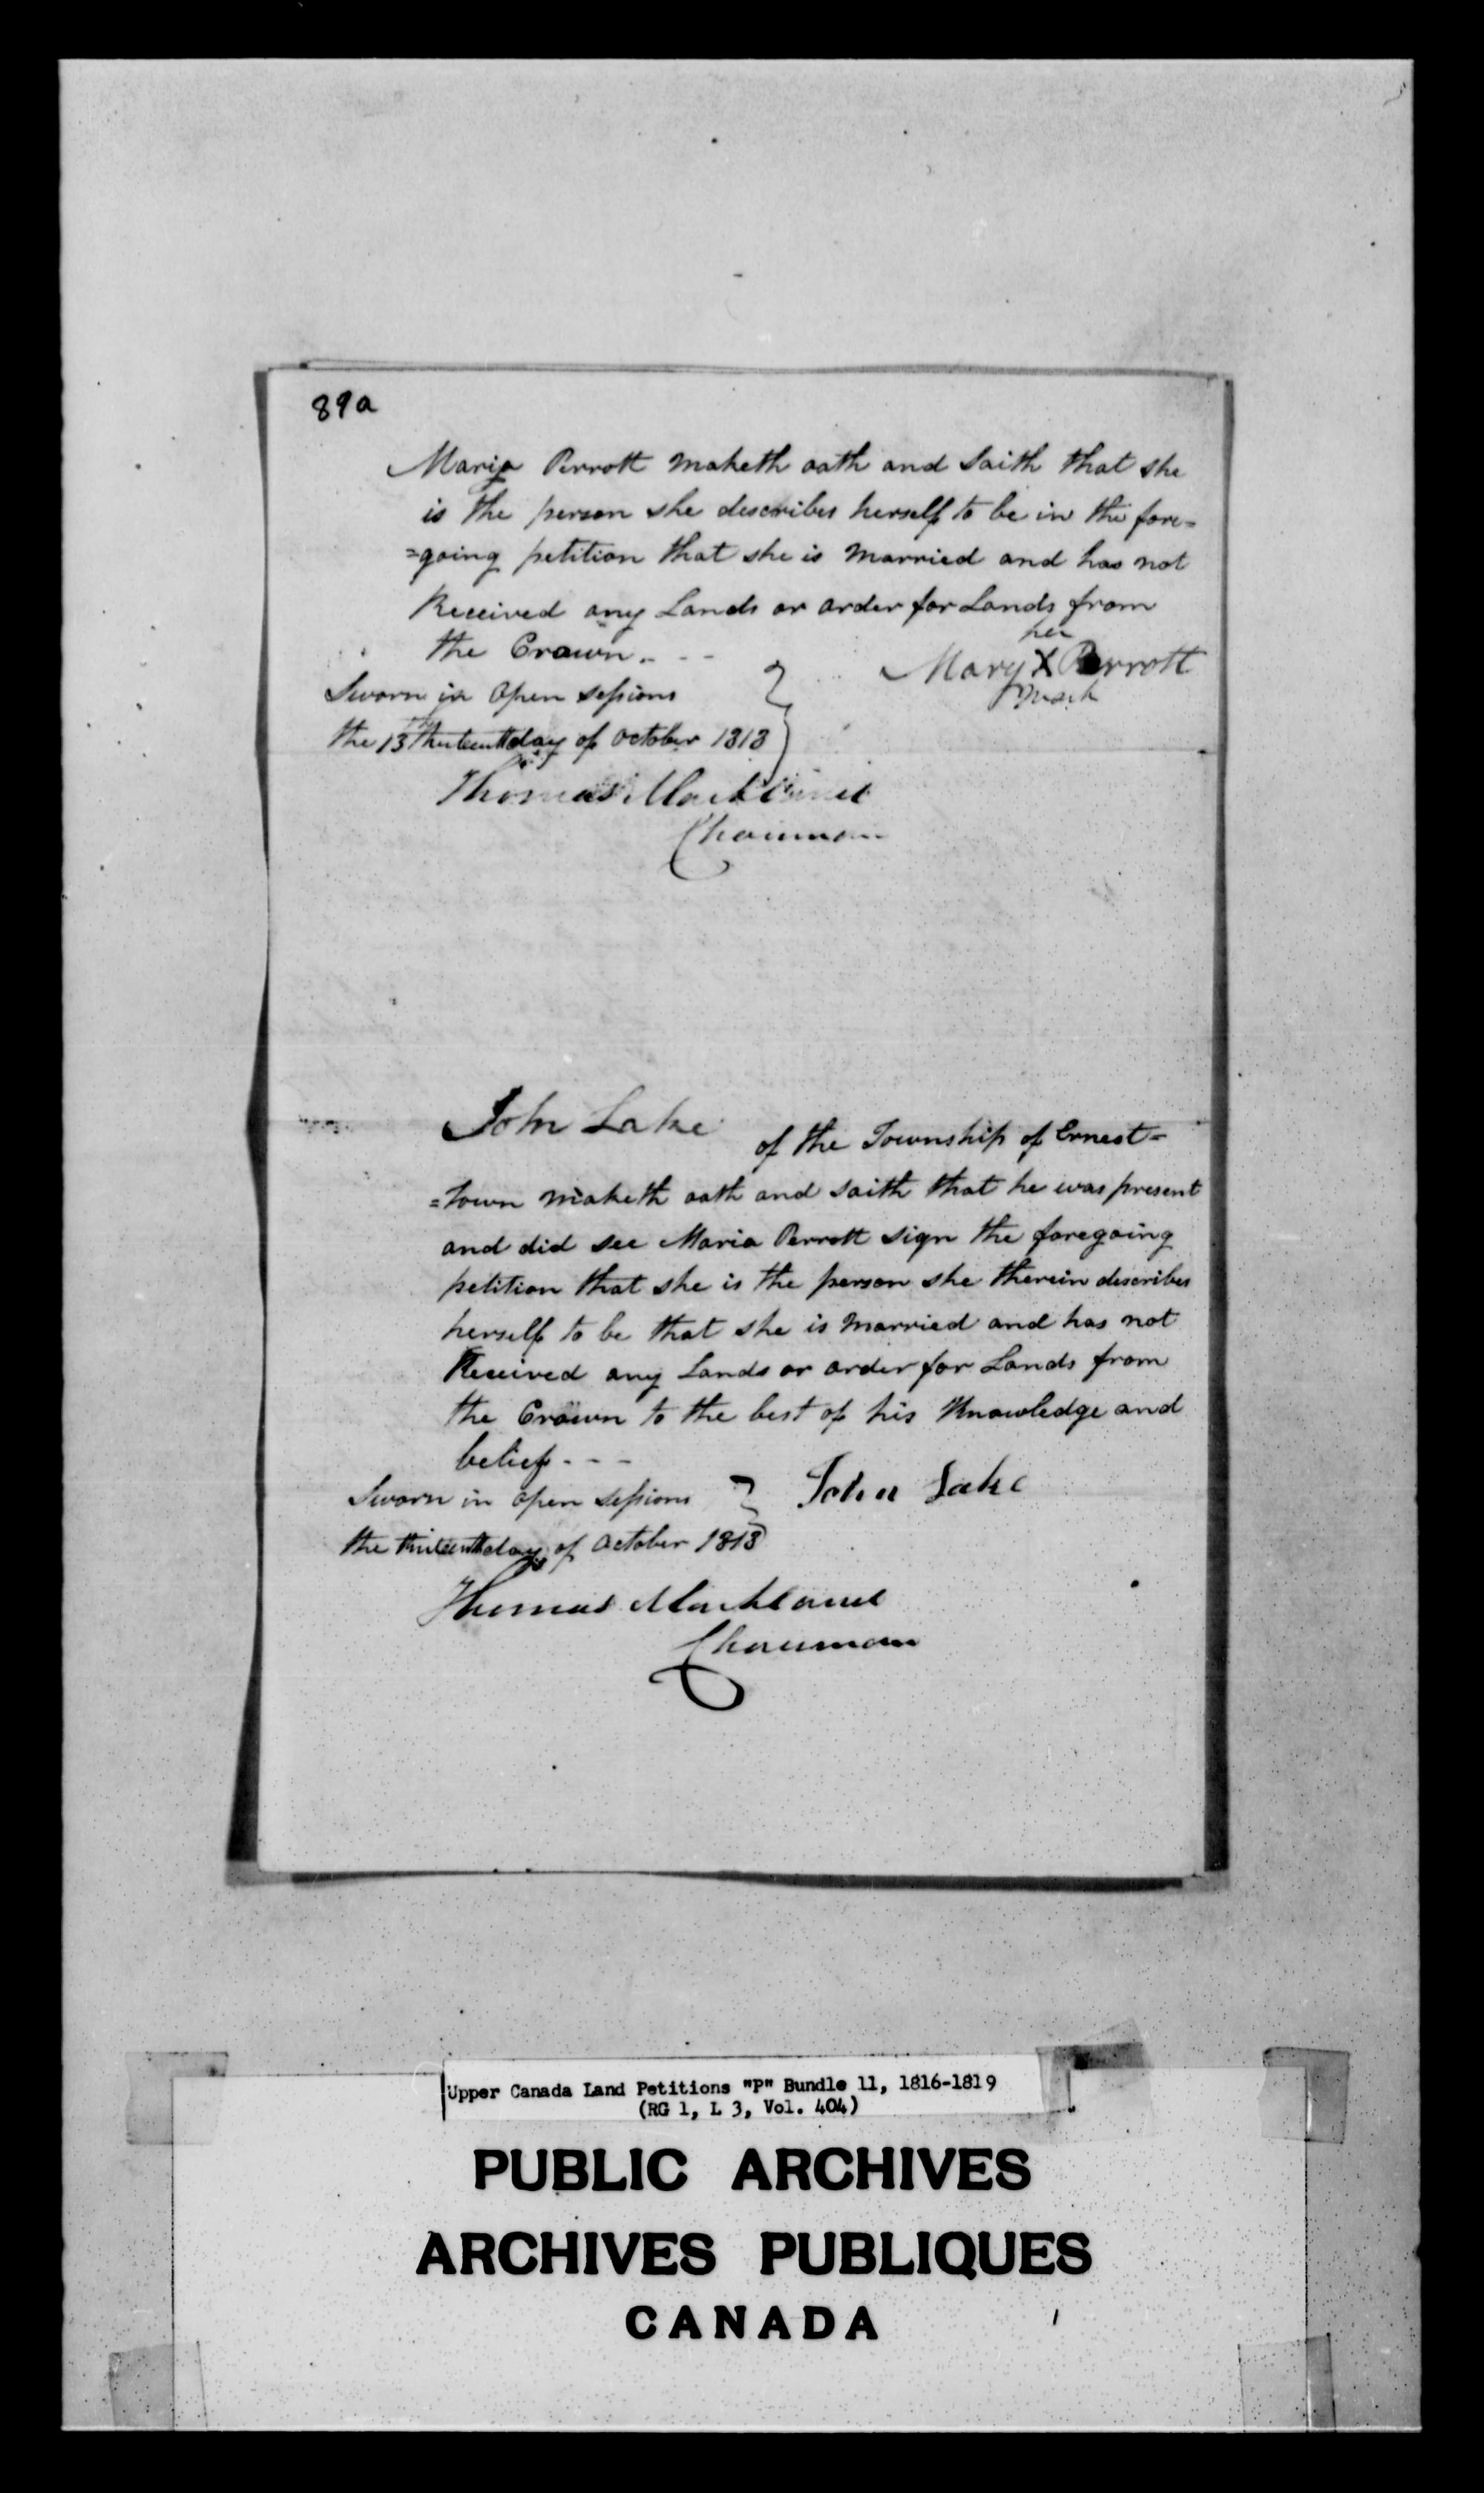 89a
Maria Perrott maketh oath and Saith that she
is the person she describes herself to be in the fore=
=going petition that she is Married and has not
Received any Lands or order for Lands from
the Crown. - -
her
Mary X Perrott
mark
Sworn in Open Sessions
the 13th thirteenth day of October 1818
Thomas Markland
Chairman
John Lake of the Township of Ernest=
=town maketh oath and saith that he was present
and did see Maria Perrott sign the foregoing
petition that she is the person she therein describes
herself to be that she is Married and has not
Received any Lands or order for Lands from
the Crown to the best of his Knowledge and
belief - - -
Sworn in open Sessions
John Lake
the thirteenth day of October 1818
Thomas Markland
Chairman
Upper Canada Land Petitions "P" Bundle 11, 1816-1819
(RG 1, L 3, Vol. 404)
PUBLIC ARCHIVES
ARCHIVES PUBLIQUES
CANADA